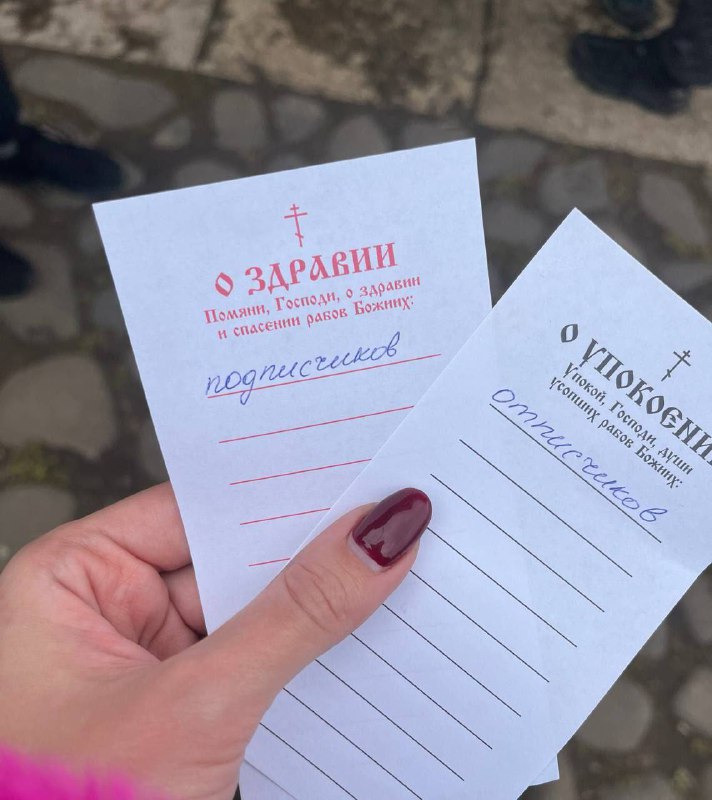 О ЗДРАВИИ
Помяни, Господи, о здравии
и спасении рабов Божиих:
подписчиков
О УПОКОЕНИ
Упокой, Господи, души
усопших рабов Божиих:
отписчиков